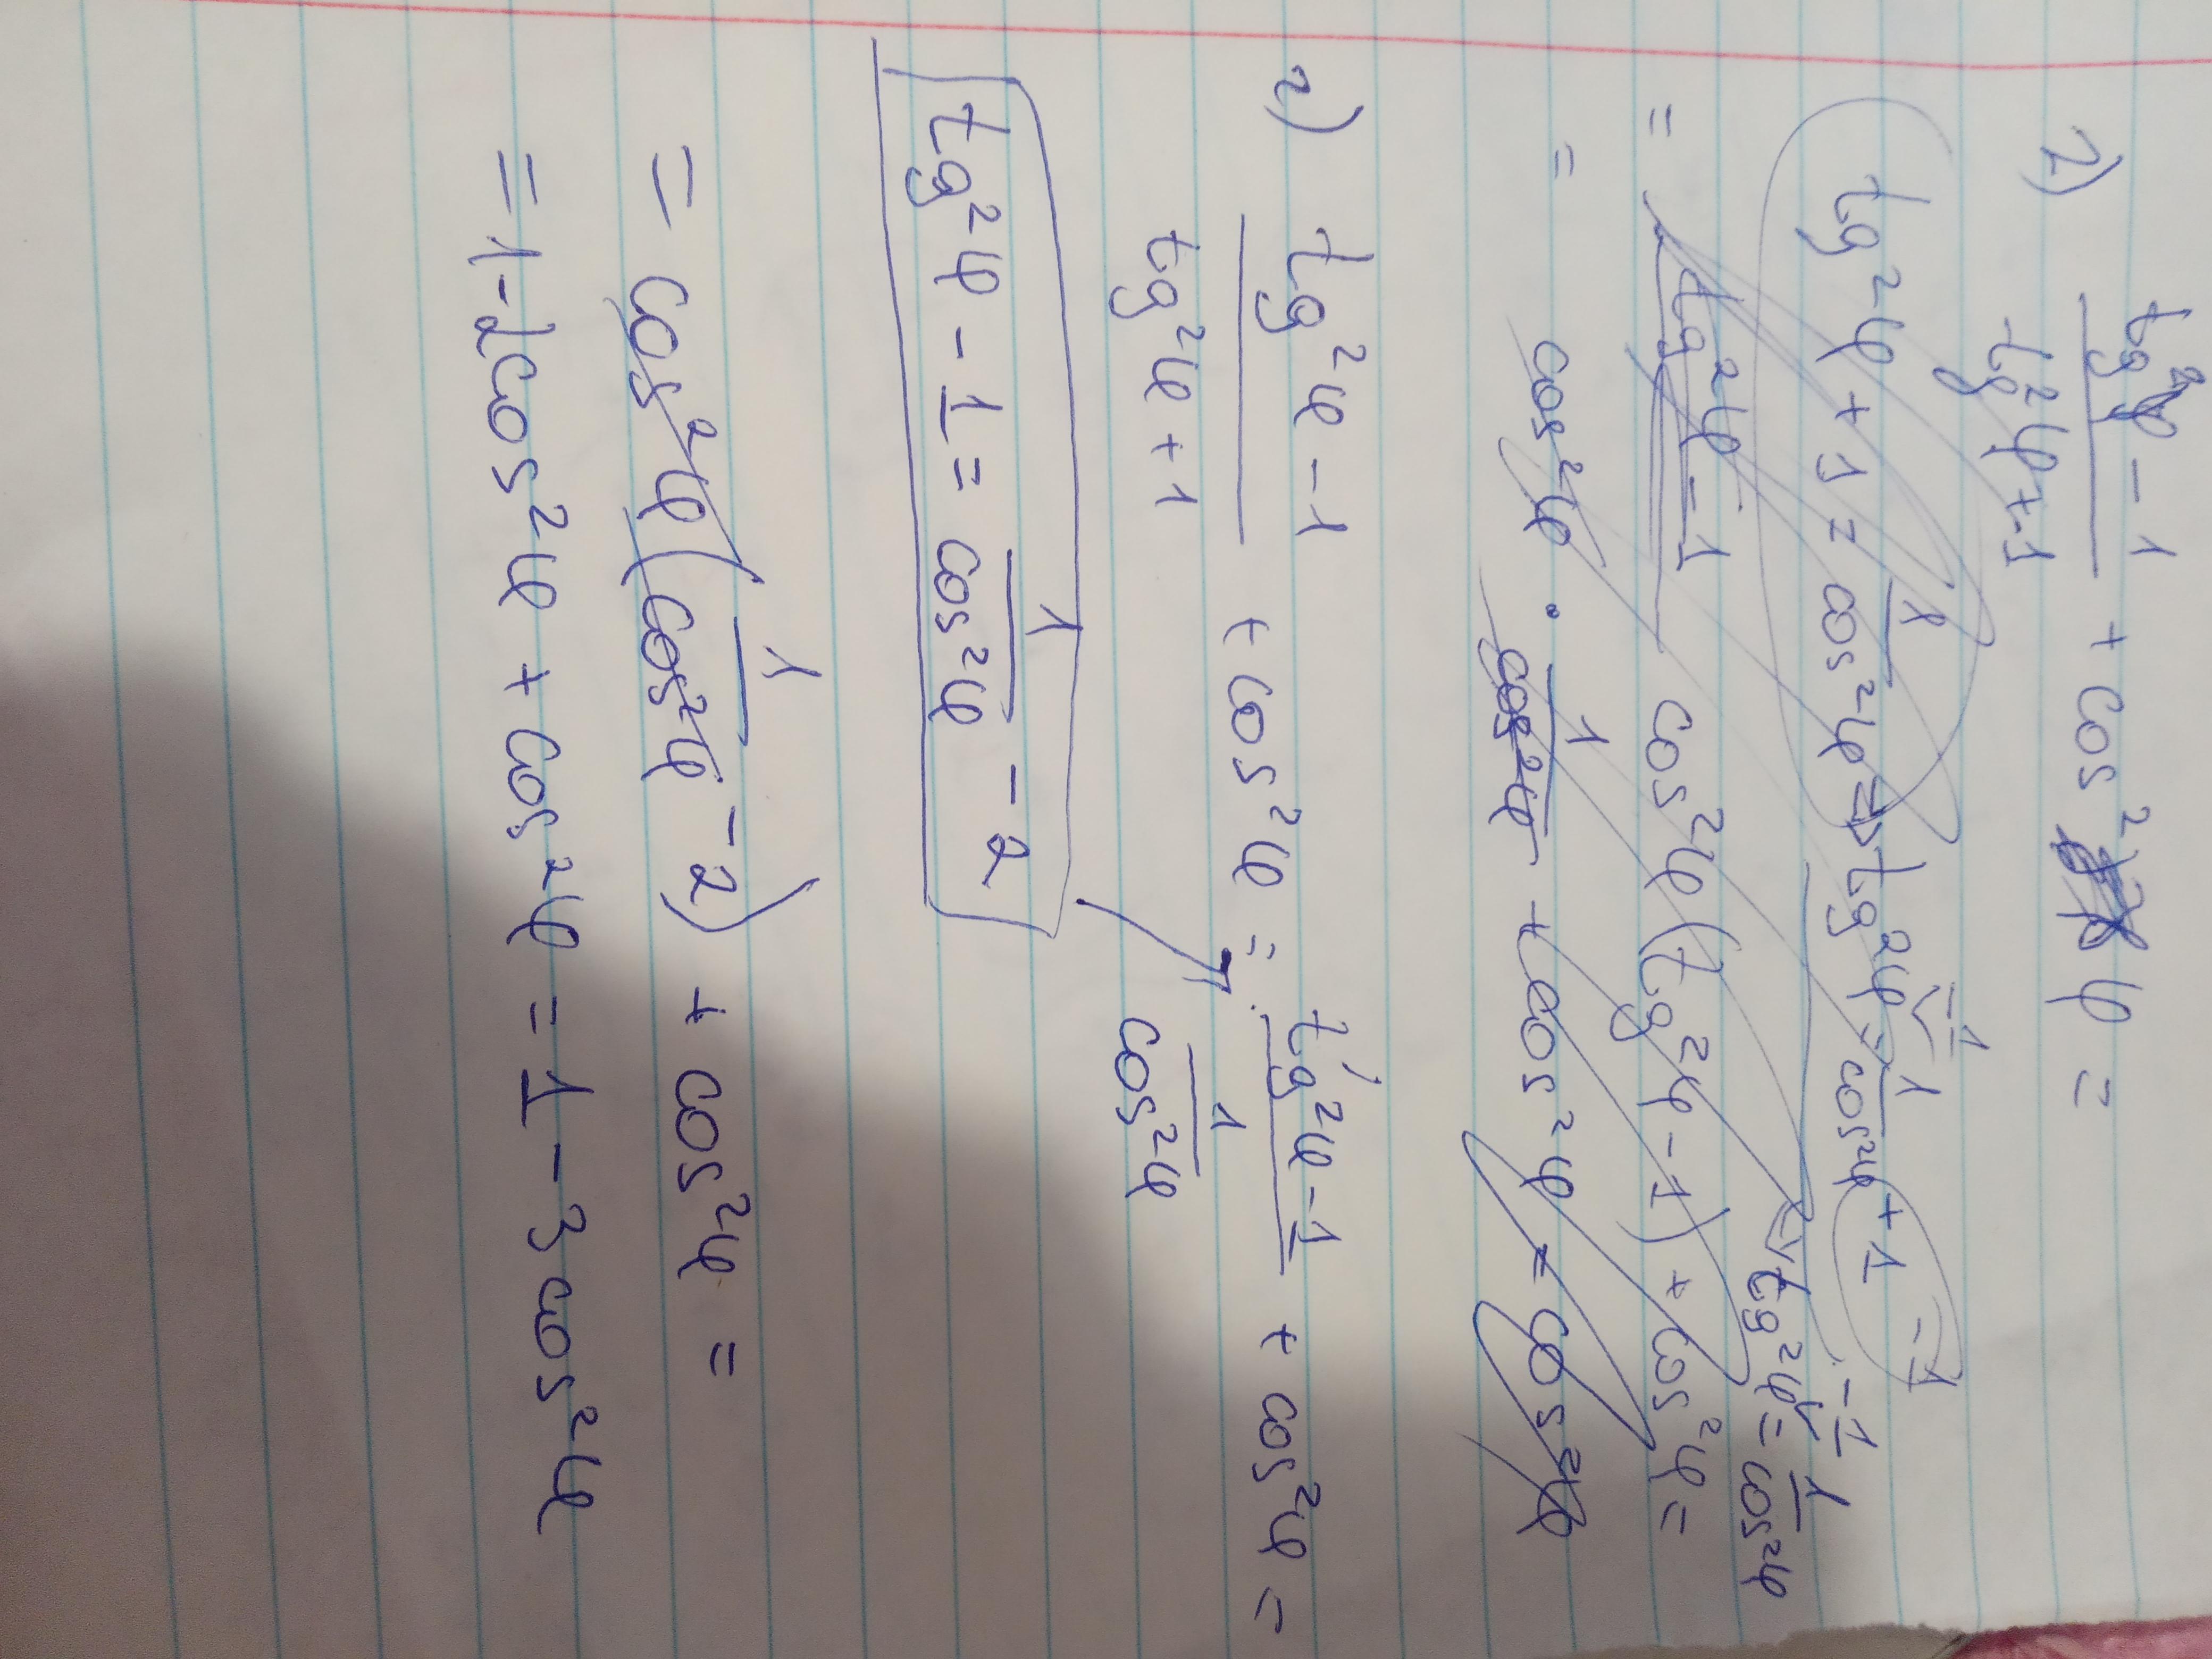 2) (tg²φ - 1)/(tg²φ + 1) + cos²φ =
tg²φ + 1 = 1/cos²φ => tg²φ = 1/cos²φ + 1 - 1
tg²φ = 1/cos²φ - 1
= tg²φ - 1 cos²φ(tg²φ - 1) + cos²φ =
= cos²φ · 1/cos²φ + cos²φ = cos²φ
2) (tg²φ - 1)/(tg²φ + 1) + cos²φ = (tg²φ - 1)/(1/cos²φ) + cos²φ =
tg²φ - 1 = 1/cos²φ - 2
= cos²φ(1/cos²φ - 2) + cos²φ =
= 1 - 2cos²φ + cos²φ = 1 - 3cos²φ